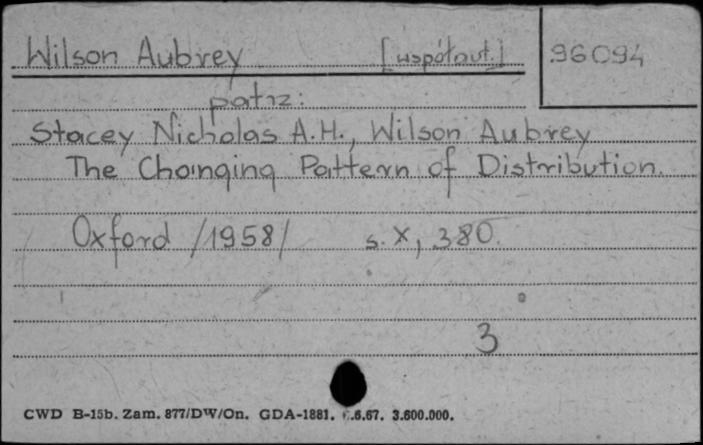 Wilson Aubrey [współaut.] 96094
patrz:
Stacey Nicholas A.H., Wilson Aubrey
The Changing Pattern of Distribution.
Oxford /1958/ s. X, 380.
3
CWD B-15b. Zam. 877/DW/On. GDA-1881. .6.67. 3.600.000.